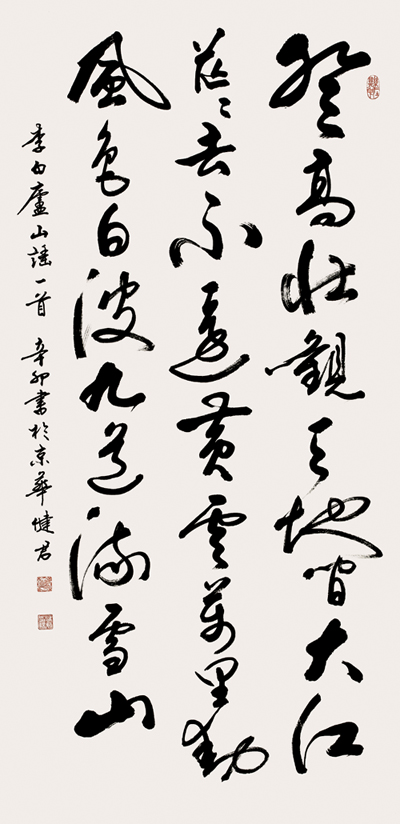 登高壯觀天地間大江
茫茫去不還黃雲萬里動
風色白波九道流雪山
李白廬山謠一首 辛卯書於京華健君